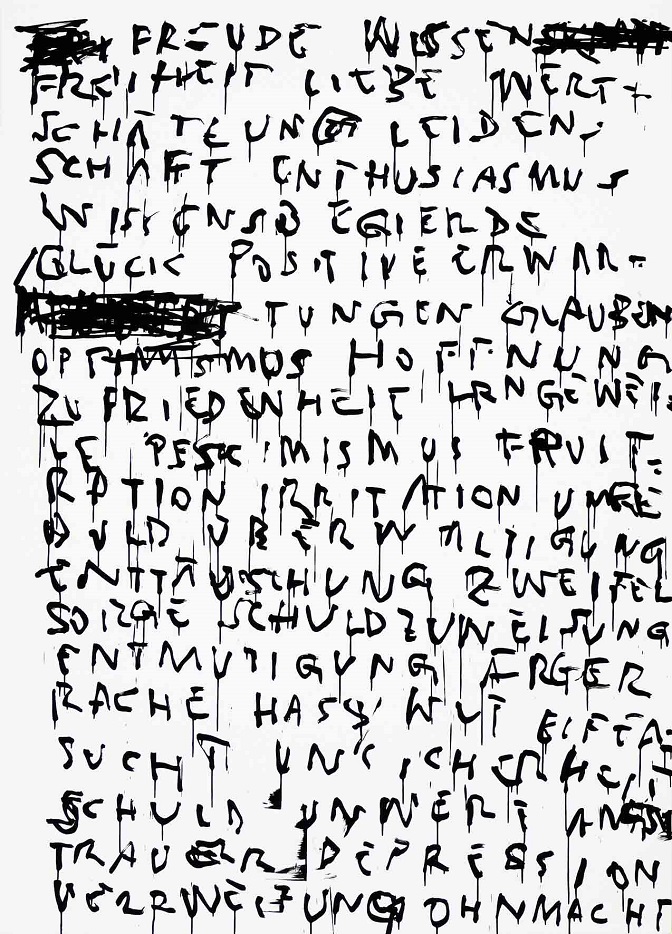 FREUDE WISSEN
FREIHEIT LIEBE WERT-
SCHÄTZUNG LEIDEN-
SCHAFT ENTHUSIASMUS
WISSENSBEGIERDE
GLÜCK POSITIVE ERWAR-
TUNGEN GLAUBEN
OPTIMISMUS HOFFNUNG
ZUFRIEDENHEIT LANGEWEI-
LE PESSIMISMUS FRUST-
RATION IRRITATION UNGE
DULD ÜBERWÄLTIGUNG
ENTTÄUSCHUNG ZWEIFEL
SORGE SCHULDZUWEISUNG
ENTMUTIGUNG ÄRGER
RACHE HASS WUT EIFER-
SUCHT UNSICHERHEIT
SCHULD UNWERT ANGST
TRAUER DEPRESSION
VERZWEIFLUNG OHNMACHT